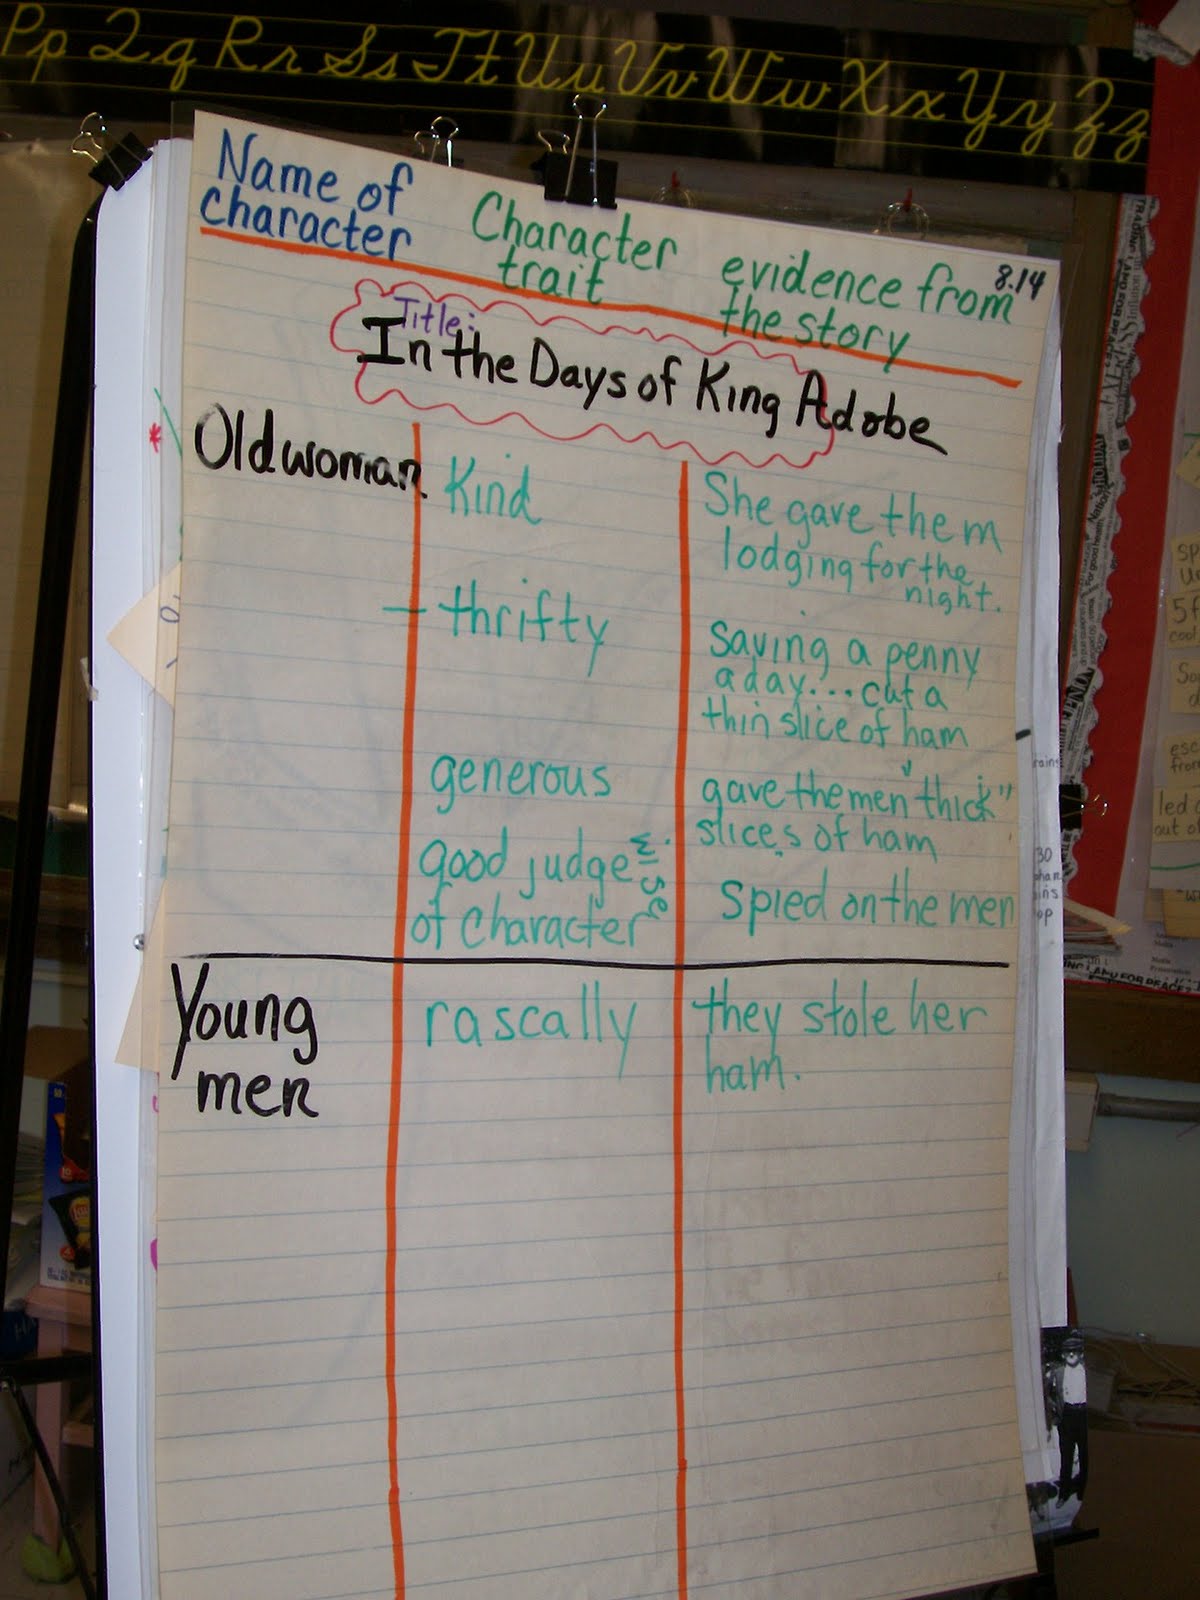 Pp Qq Rr Ss Tt Uu Vv Ww Xx Yy Zz
Name of
character
Character
trait
evidence from
the story
8.14
Title:
In the Days of King Adobe
Old woman
Kind
She gave them
lodging for the
night.
thrifty
saving a penny
a day... cut a
thin slice of ham
generous
gave the men "thick"
slices of ham
good judge
of character
wise
Spied on the men
Young
men
rascally
they stole her
ham.